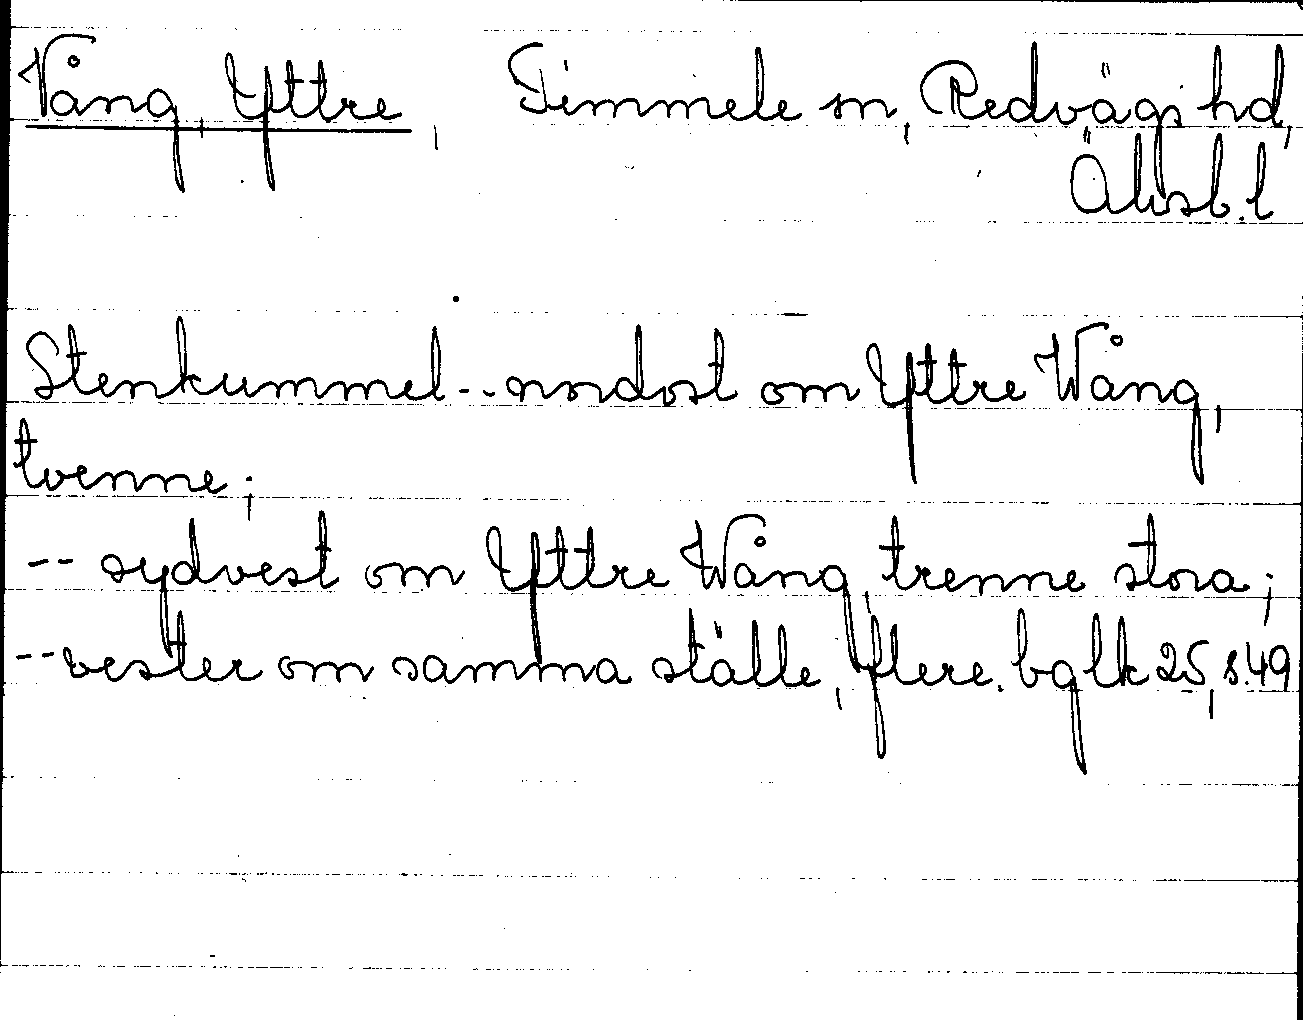 Vång, Yttre, Timmele sn, Redvägs hd,
Älvsb. l
Stenkummel -- nordost om Yttre Wång,
tvenne;
-- sydvest om Yttre Wång, trenne stora;
-- vester om samma ställe, flere. bglk 25, s. 49